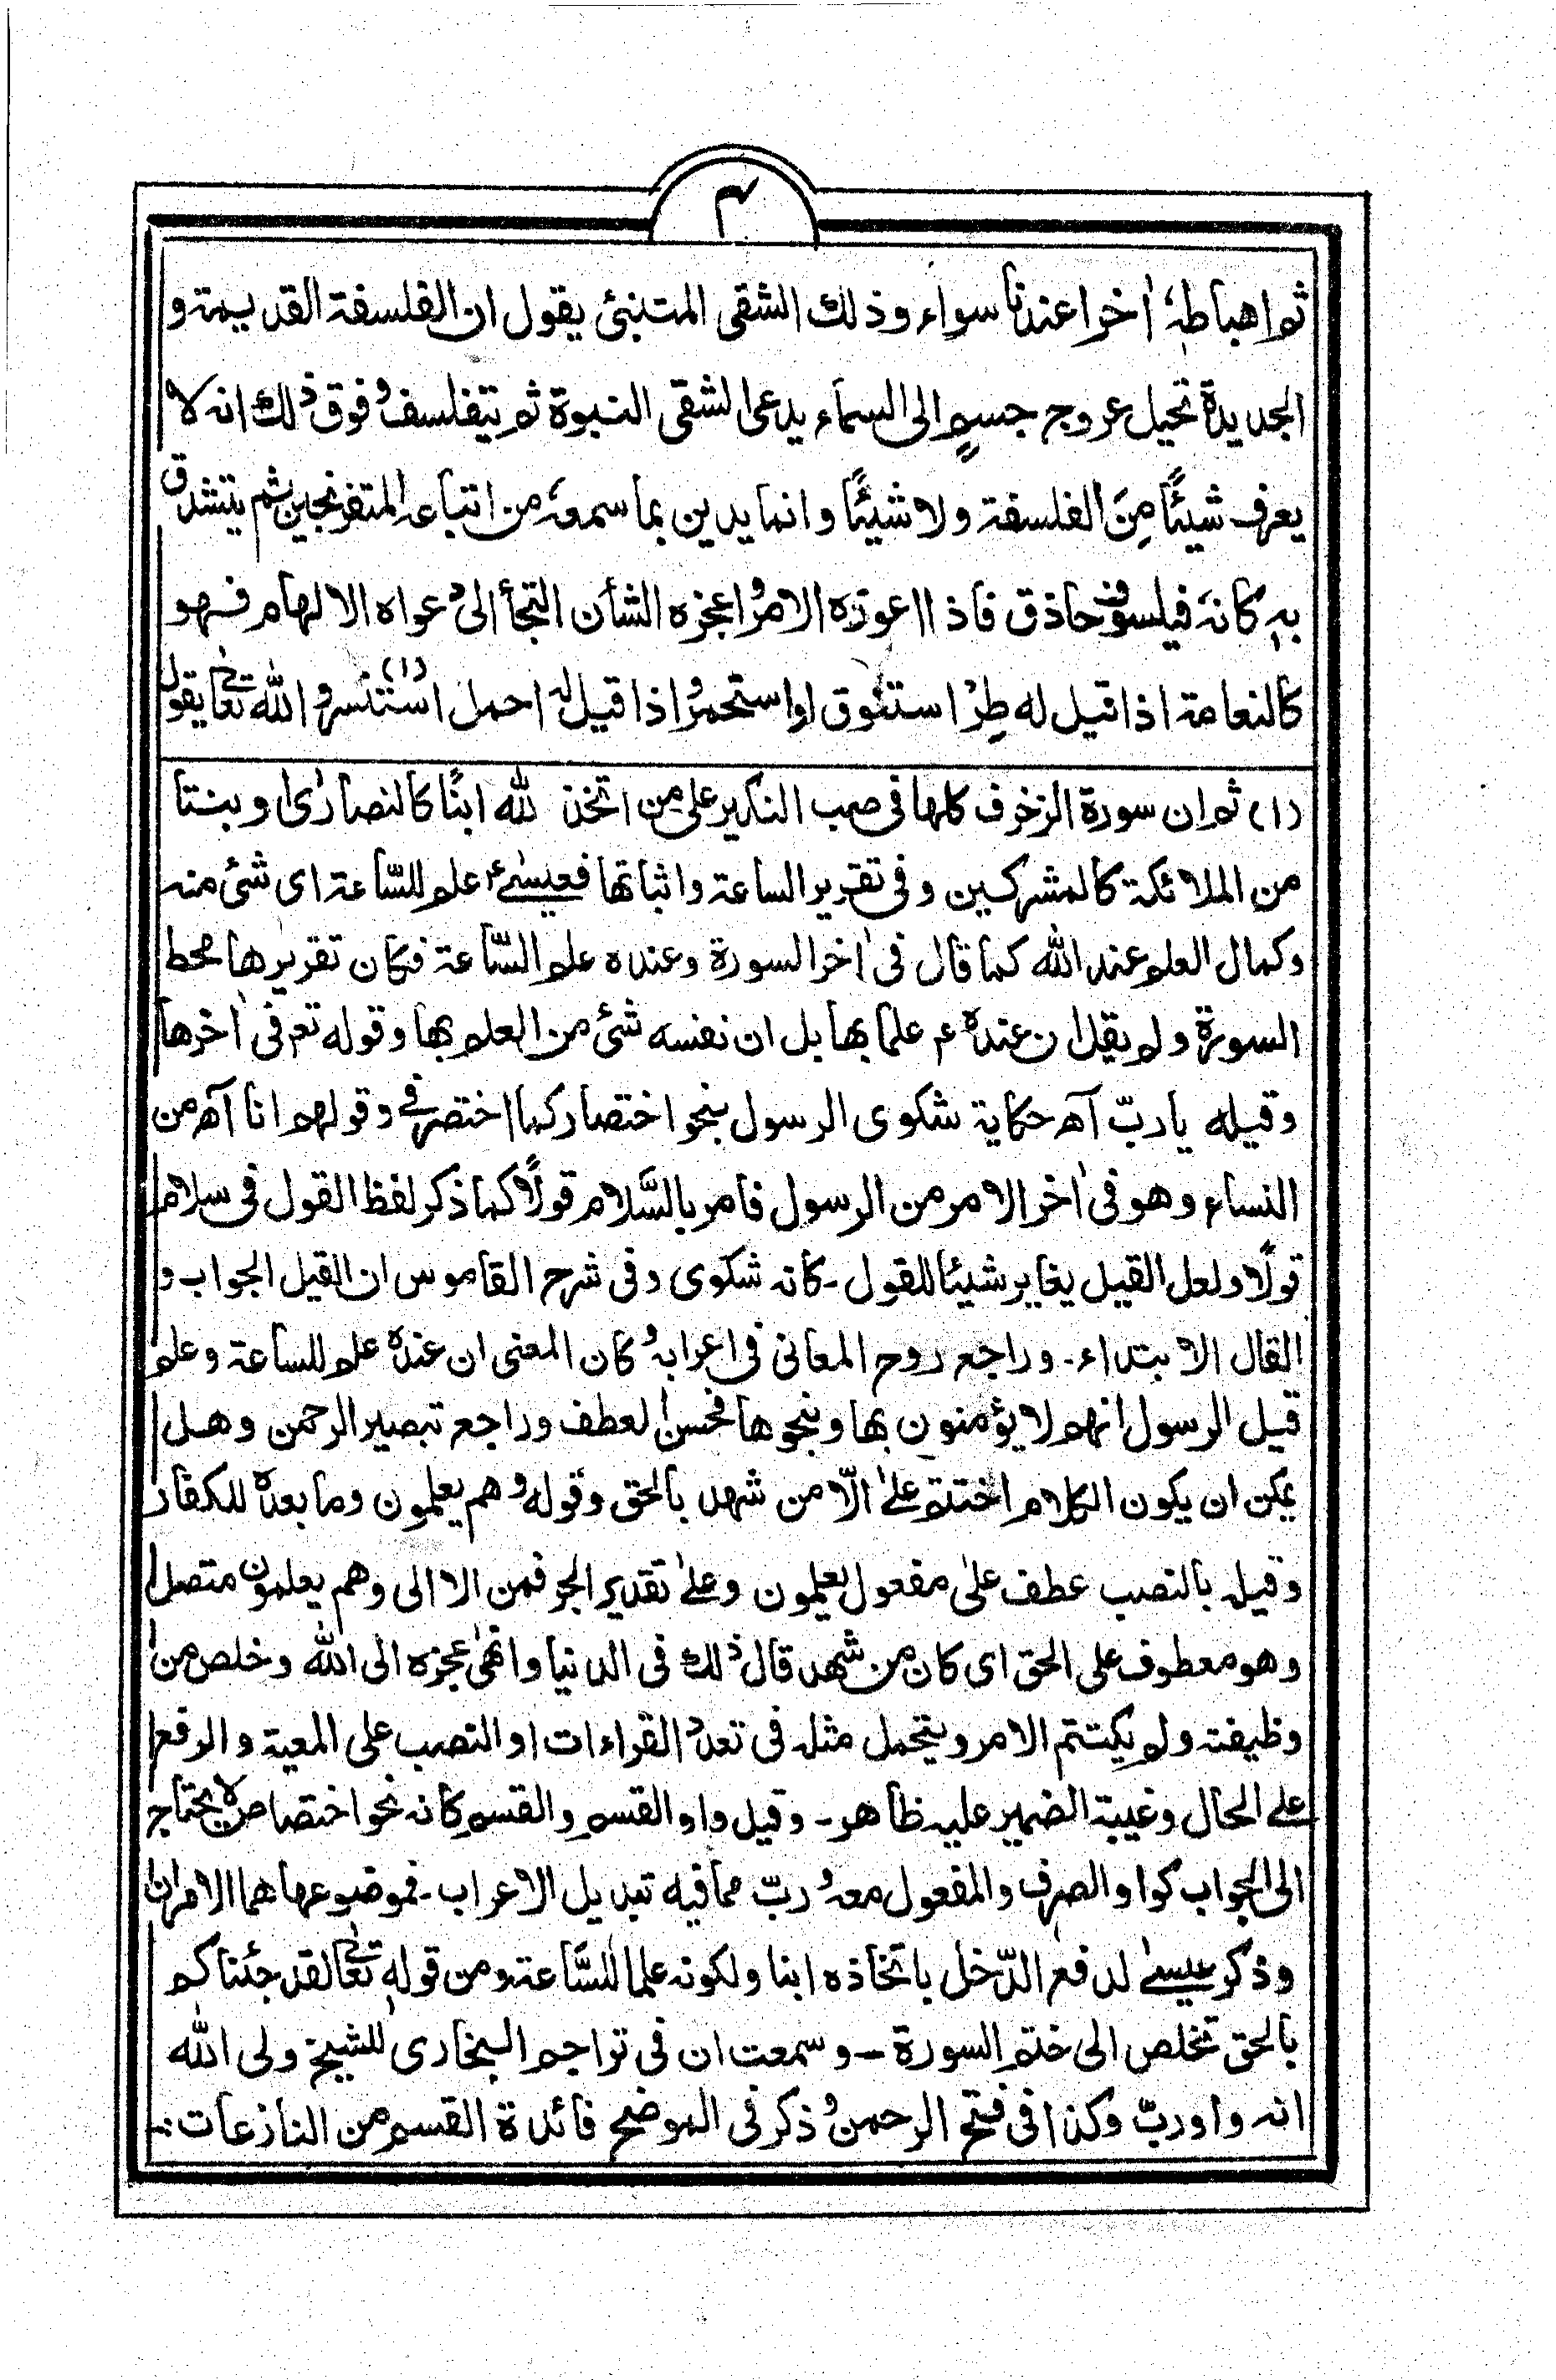 ۴
ثم اهباطہٗ اٰخرا عندنا سواء وذلك الشقى المتنبئ يقول ان الفلسفة القديمة و
الجديدة تحيل عروج جسمٍ الى السماء يدعى الشقى النبوة ثم يتفلسف وفوق ذلك انه لا
يعرف شيئًا مِنَ الفلسفة ولا شيئًا وانما يدين بما سمعہٗ من اتباعہ المتفرنجين ثم يتشدق
بهٖ كانہٗ فيلسوف حاذق فاذا اعوزه الامر واعجزه الشأن التجأ الى دعواه الالهام فهو
كالنعامة اذا قيل له طِرْ استنوق او استحمر واذا قيل لہ احمل استنسر (۱) والله تعالٰے يقول
(۱) ثم ان سورة الزخرف كلها فى صب النكير على من اتخذ لله ابنًا كالنصارٰى او بنتا
من الملائكة كالمشركين وفى تقرير الساعة واثباتها فعيسٰےؑ علم للسّاعة اى شئ منه
وكمال العلم عند الله كما قال فى اٰخر السورة وعنده علم السّاعة فكان تقريرها محط
السورة ولم يقل ان عنده ع علما بها بل ان نفسه شئ من العلم بها وقوله تع فى اٰخرها
وقيله يا ربّ آه حكاية شكوى الرسول بنحو اختصار كما اختصر فے وقولهم انا آه من
النساء وهو فى اٰخر الامر من الرسول فامر بالسَّلام قولًا كما ذكر لفظ القول فى سلام
قولًا ولعل القيل يغاير شيئا للقول ـ كانه شكوى وفى شرح القاموس ان القيل الجواب و
القال الابتداء ـ وراجع روح المعانى فى اعرابه وكان المعنى ان عنده علم للساعة وعلم
قيل الرسول انهم لا يؤمنون بها وبنحوها فحسن العطف وراجع تبصير الرحمن وهل
يمكن ان يكون الكلام اختتم علىٰ الّا من شهد بالحق وقوله وهم يعلمون وما بعده للكفار
وقيل بالنصب عطف علىٰ مفعول يعلمون وعلىٰ تقدير الجر فمن الا الى وهم يعلمون متصل
وهو معطوف على الحق اى كان من شهد قال ذلك فى الدنيا وانهىٰ عجزه الى الله وخلص من
وظيفته ولم يكتتم الامر ويتحمل مثله فى تعدد القراءات او النصب على المعية والرفع
علے الحال وغيبة الضمير عليه ظاهر ـ وقيل واو القسم والقسم كانه نحو اختصاص لا يحتاج
الى الجواب كواو الصرف والمفعول معه وربّ مما فيه تبديل الاعراب ـ فموضوعها هما الامران
وذكر عيسےٰ لدفع الدّخل باتخاذه ابنا ولكونه علما للسَّاعة ومن قولهٖ تعالٰے لقد جئناكم
بالحق تخلص الى ختم السورة ـ وسمعت ان فى تراجم البخارى للشيخ ولى الله
انه واو ربّ وكذا فى فتح الرحمن وذكر فى الموضح فائدة القسم من النازعات ؞